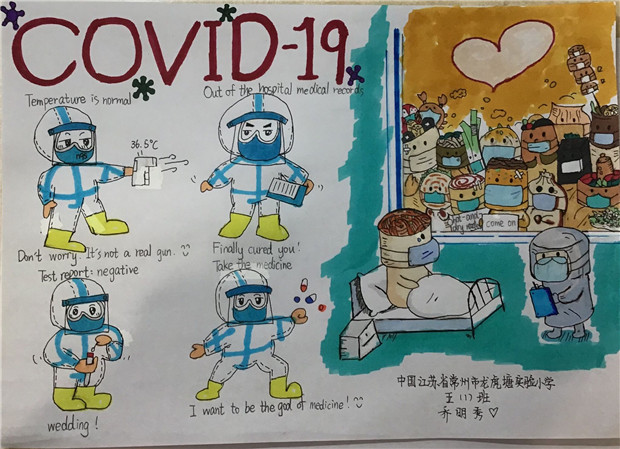 COVID-19
Temperature is normal
36.5°C
Don't worry. It's not a real gun.
Out of the hospital medical records
Finally cured you!
Test report: negative
wedding!
Take the medicine
I want to be the god of medicine!
Hot-and-
dry noodle
come on
中国江苏省常州市龙虎塘实验小学
五(17)班
乔明秀♡